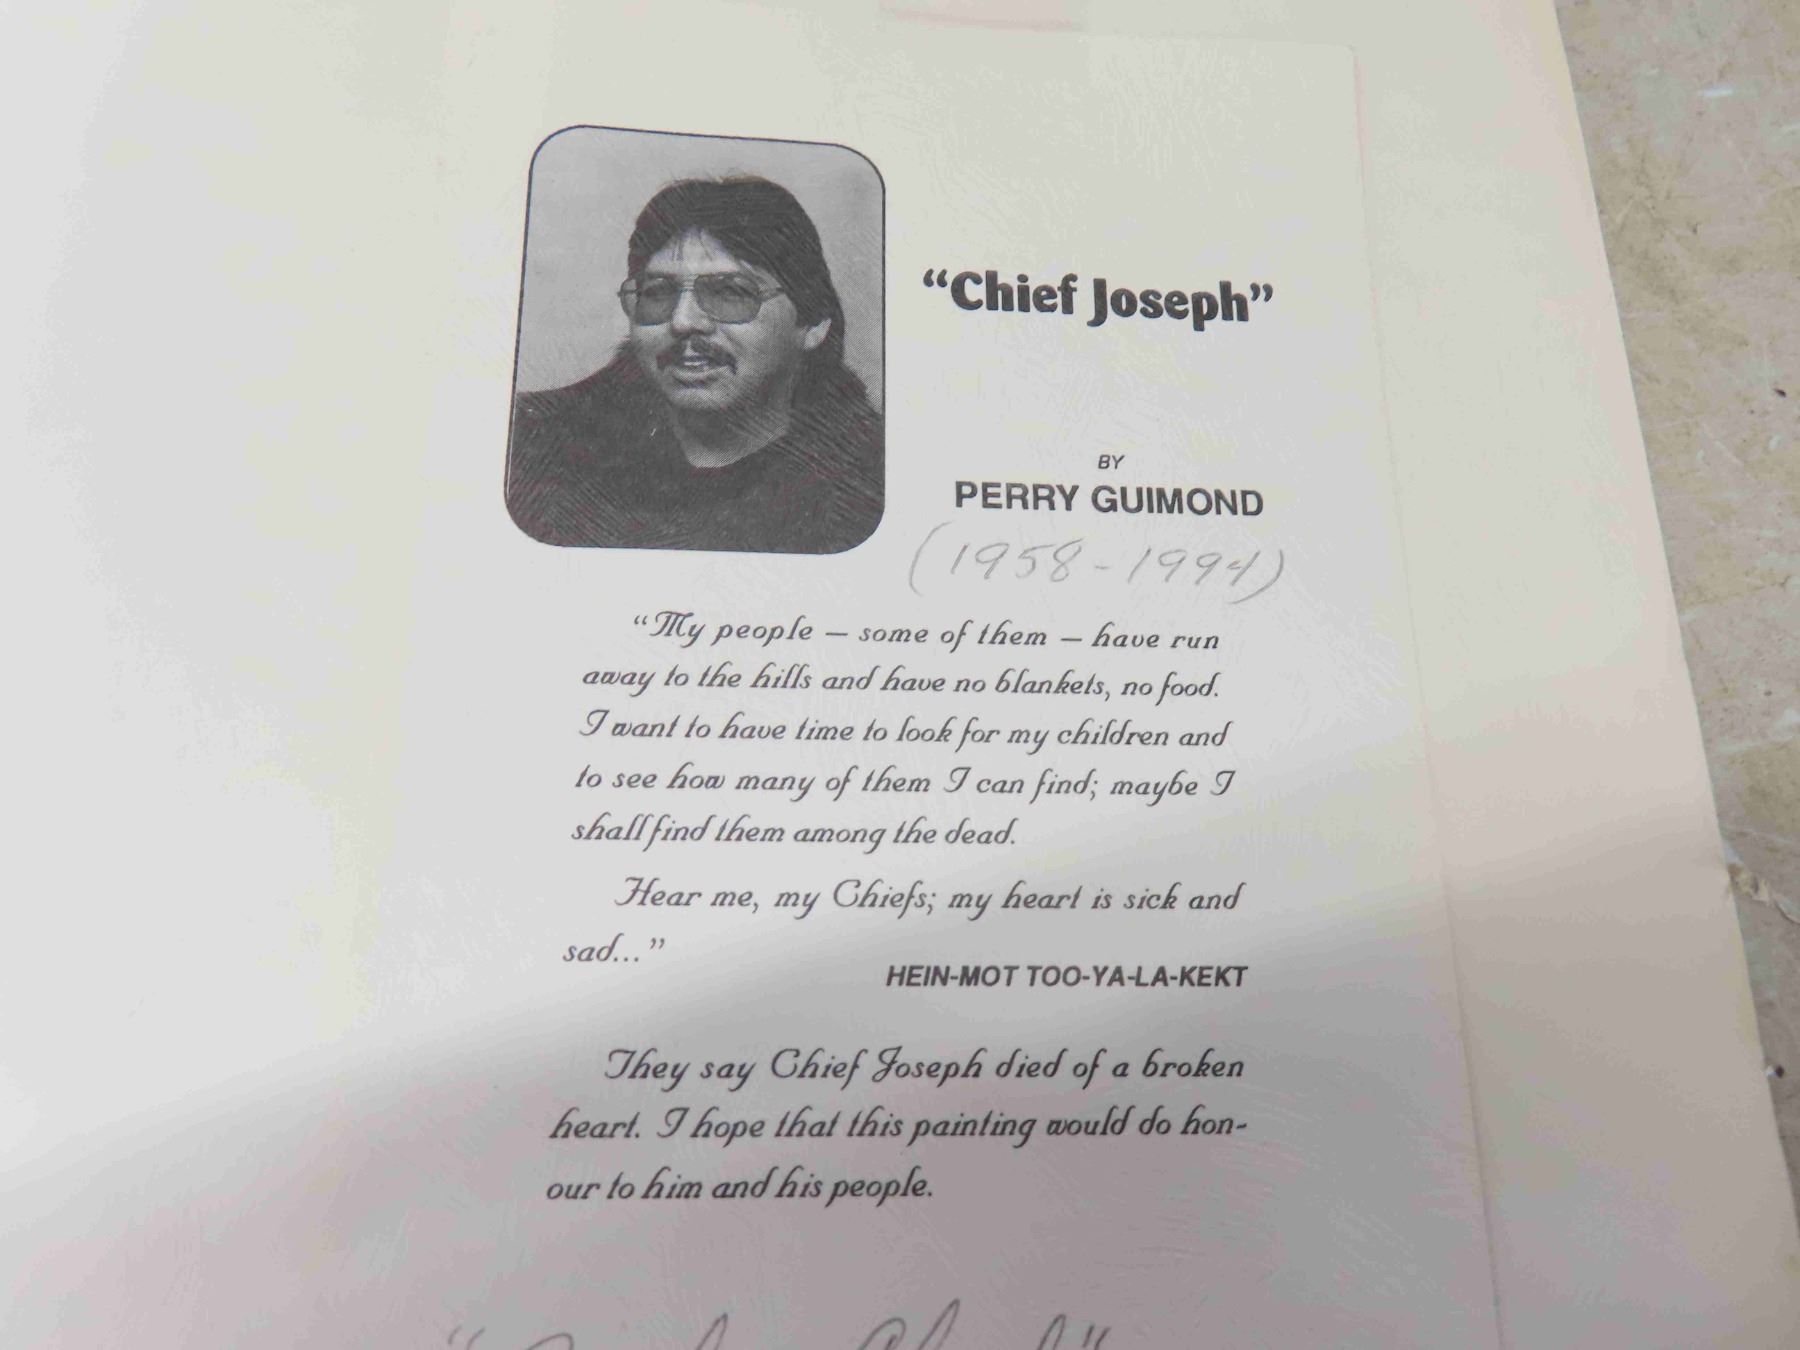 “Chief Joseph”
BY
PERRY GUIMOND
(1958-1994)
“My people – some of them – have run
away to the hills and have no blankets, no food.
I want to have time to look for my children and
to see how many of them I can find; maybe I
shall find them among the dead.
Hear me, my Chiefs; my heart is sick and
sad...”
HEIN-MOT TOO-YA-LA-KEKT
They say Chief Joseph died of a broken
heart. I hope that this painting would do hon-
our to him and his people.